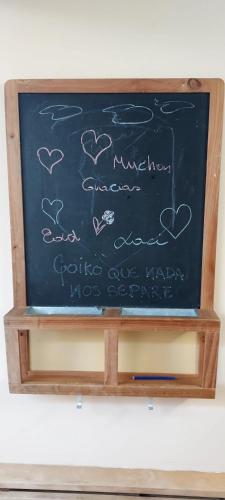 Muchas
Gracias
Goiko QUE NADA
NOS SEPARE